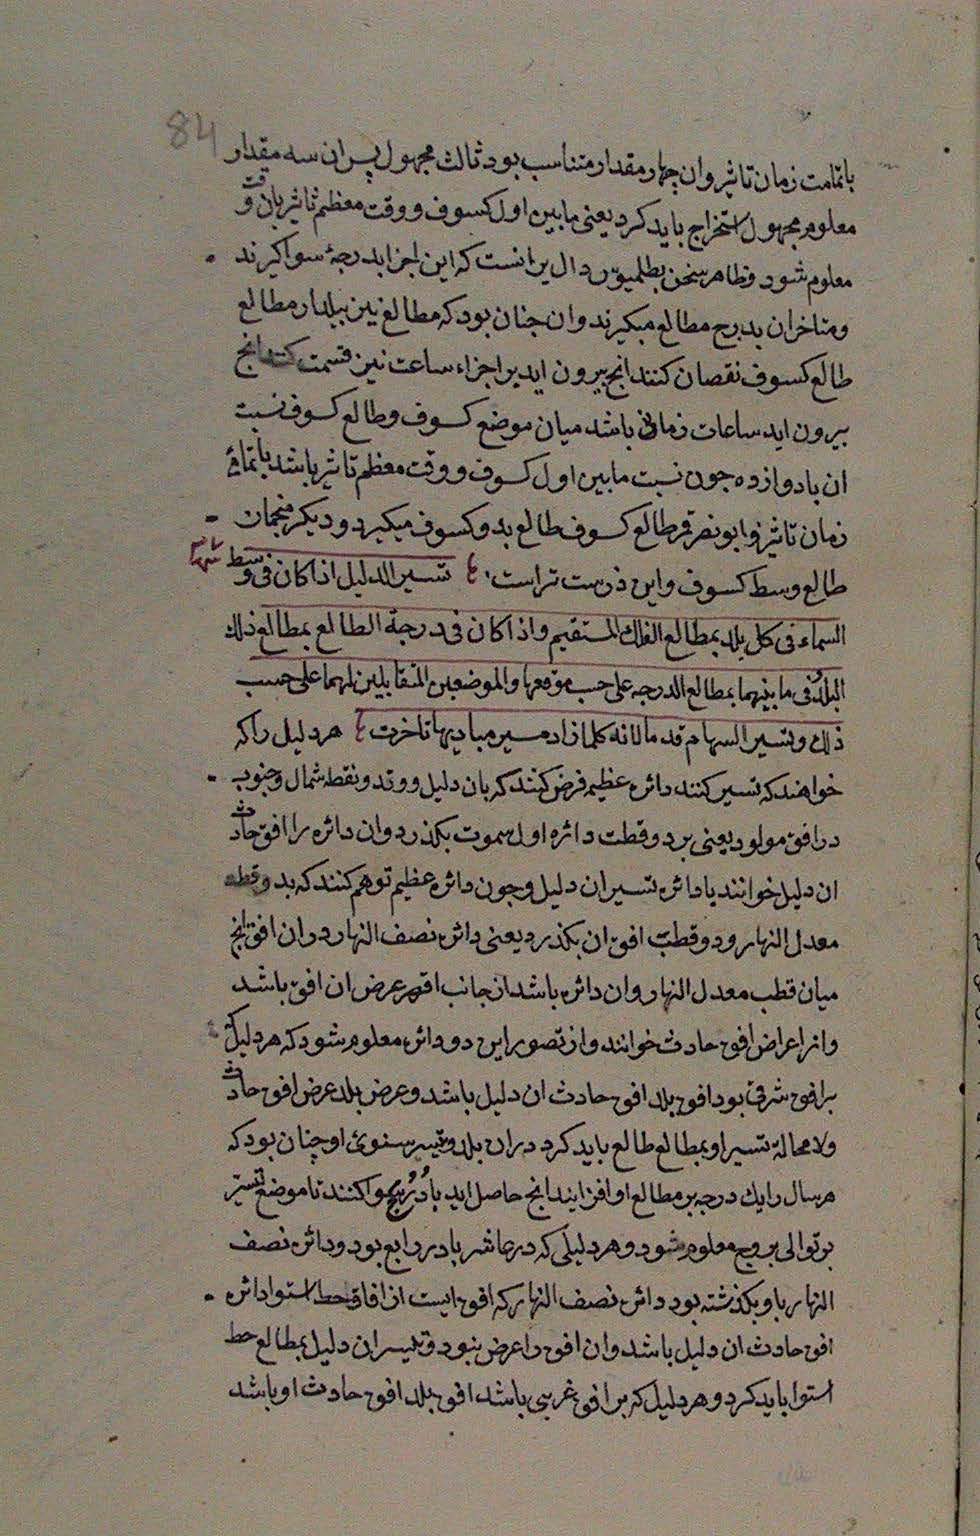 84
باتمامت زمان تاثیر وان چهار مقدار متناسب بود ثالث مجهول پس ازان سه مقدار
معلوم مجهول استخراج باید کرد یعنی مابین اول کسوف و وقت معظم تاثیر بان وقت
معلوم شود و ظاهر سخن بطلمیوس دال برانست که این اجزا بدرجهٔ سوا کیرند
ومتاخران بدرج مطالع میکیرند وان چنان بود که مطالع نیز ببلد از مطالع
طالع کسوف نقصان کنند انج بیرون اید بر اجزاء ساعت نیز قسمت کنند انج
بیرون اید ساعات زمانی باشد میان موضع کسوف وطالع کسوف نسبت
ان با دوازده جون نسبت مابین اول کسوف و وقت معظم تاثیر باشد باتمامی
زمان تاثیر و ابونصر قمر طالع کسوف طالع بدو کسوف میکیرد و دیکر منجمان
طالع وسط کسوف واین درست تراست تسییر الدلیل اذا کان فی وسط
السماء فی کل بلد بمطالع الفلك المستقیم واذا کان فی درجة الطالع بمطالع ذلك
البلد وفی ما بینهما بمطالع الدرجه علی حسب موقعها والموضعین المتقابلین لهما علی حسب
ذلك وتسییر السهام قدما لانه کلما زاد مسیر مبادیها تاخرت هر دلیل را که
خواهند که تسییر کنند دائرهٔ عظیمه فرض کنند که بان دلیل و وتد و نقطه شمال وجنوب
در افق مولود یعنی بر دو قطب دائره اول سموت بکذرد وان دائره را افق حادث
ان دلیل خوانند یا دائره تسییر ان دلیل وجون دائرهٔ عظیم توهم کنند که بدو قطب
معدل النهار ودو قطب افق ان بکذرد یعنی دائره نصف النهار دران افق انج
میان قطب معدل النهار وان دائره باشد از جانب اقصر عرض ان افق باشد
وانرا عرض افق حادث خوانند واز تصور این دو دائره معلوم شود که هر دلیل که
بر افق شرقی بود افق بلد افق حادث ان دلیل باشد وعرض بلد عرض افق حادث
ولا محالة تسییر او بمطالع طالع باید کرد دران بلد وتسییر سنوی او چنان بود که
هر سال رایك درجه بر مطالع او افزایند انج حاصل اید با درج سوا کنند تا موضع تسییر
بر توالی بروج معلوم شود وهر دلیلی که در عاشر یا در رابع بود ودائره نصف
النهار باو بکذشته بود دائره نصف النهار که افقیست از افاق خط استوا دائره
افق حادث ان دلیل باشد وان افق را عرض نبود وتسییر ان دلیل بمطالع خط
استوا باید کرد وهر دلیل که بر افق غربی باشد افق بلد افق حادث او باشد